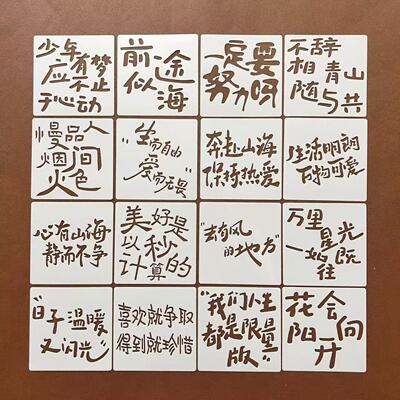 少年有梦
应不止
于心动
前途
似海
一定要
努力呀
不辞青山
相随与共
慢品人间
烟火色
"生而自由
爱而无畏"
奔赴山海
保持热爱
生活明朗
万物可爱
心有山海
静而不争
美好是
以秒
计算的
"去有风
的地方"
万里星光
一如既往
"日子温暖
又闪光"
喜欢就争取
得到就珍惜
"我们人生
都是限量
版"
花会向
阳开